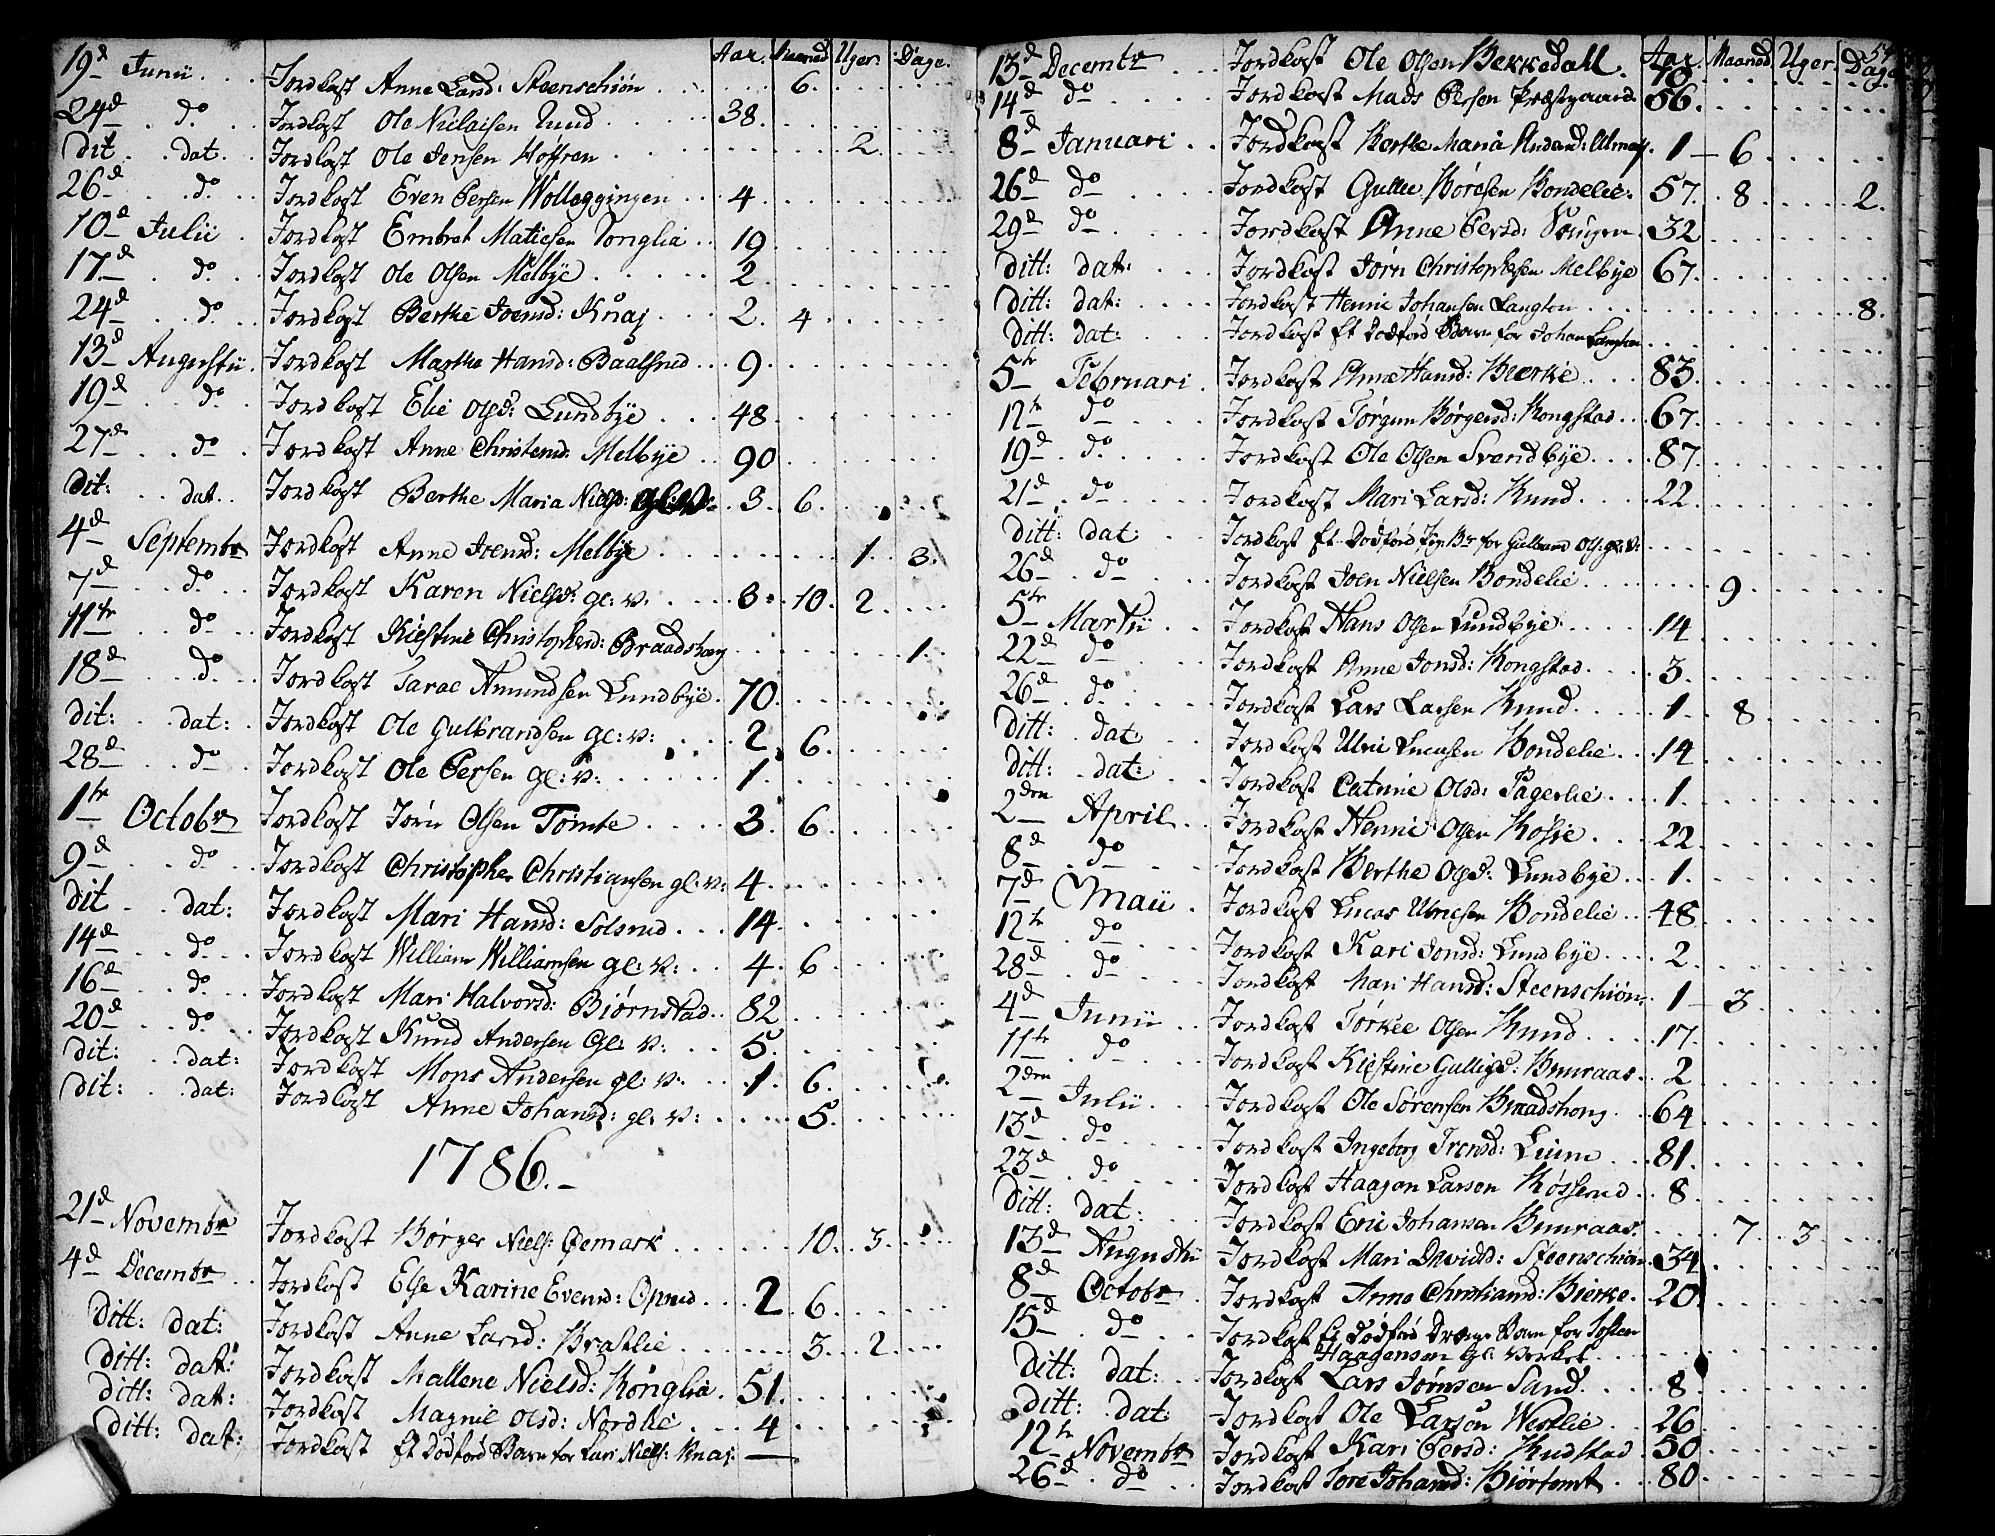 Aar. Maaned Uger. Dage.
19d Junii . . . Jordkast Anne Larsd: Steenschiön . . . 6.
24d . do . . Jordkast Ole Nielsen Lund . . . 38.
dit . . dat. . Jordkast Ole Jensen Hoffren . . . 2.
26d . do . . Jordkast Even Persen Wolleggingen . . 4.
10d Julii . Jordkast Embret Matiesen Tonglia . . 19.
17d . do . . Jordkast Ole Olsen Melbye . . . 2.
24d . do . . Jordkast Berthe Joensd: Knaj . . . 2. 4.
13d Augustii . Jordkast Marthe Hansd: Baalsrud . . . 9.
19d . . do . Jordkast Elie Olsd: Lundbye . . . 48.
27d . . do . . Jordkast Anne Christensd: Melbye . . 90.
dit: . . dat . . Jordkast Berthe Maria Nielsd: gl: V: . 3. 6.
4d Septembr Jordkast Anne Joensd: Melbye . . . 1. 3.
7d . . do . . Jordkast Karen Nielsd: gl: v: . . . 3. 10. 2.
11te . . do . . Jordkast Kiestine Christophersd: Braadshoug . . . 1.
18d . . do . Jordkast Tarae Amundsen Lundbye . 70.
dit: . . dat: . Jordkast Ole Gulbrandsen gl: v: . . . 2. 6.
28d . . do . . Jordkast Ole Persen gl: v: . . . 1.
1te Octobr Jordkast Jörn Olsen Tomte . . . 3. 6.
9d . . do . . Jordkast Christopher Christiansen gl: v: 4.
dit . . dat: Jordkast Mari Hansd: Solsrud . . . 14.
14d . . do . . Jordkast William Williamsen gl: v: . . 4. 6.
16d . . do . . Jordkast Mari Halvorsd: Biörnstad . . 82
20d . . do . . Jordkast Knud Andersen Gl: v: . . . 5.
dit: . . dat: Jordkast Mons Andersen gl: v: . . . 1. 6.
dit: . . dat: Jordkast Anne Johansd: gl: v: . . . 5.
1786.
21d Novembr Jordkast Börger Niels: Ödemark . . . 10. 3.
4d Decembr . . Jordkast Else Karine Evensd: Opsud . . . 2 6.
Ditt: dat: Jordkast Anne Larsd: Bratlie . . . 3. 2.
Ditt: dat: Jordkast Mallene Nielsd: Konglia . 51.
Ditt: dat: Jordkast Magnil Olsd: Nordlie . . . 4
Ditt: dat: Jordkast Et Dödföd Barn for Lars Niels: Knaj. —
54
Aar. Maaned Uger. Dage
13d Decembr Jordkast Ole Olsen Bekkedall. 40.
14d do . . . Jordkast Mads Persen Præstgaard. 56.
8d Januari . . Jordkast Berthe Maria Andersd: 1 — 6
26d do . . Jordkast Gullie Böresen Bondelie. 57. 8. 2.
29d do . . . Jordkast Anne Persd: . 32
ditt: dat: . . . Jordkast Jörn Christophersen Melbye 67.
ditt: dat: . . . Jordkast Henrie Johansen Langton . . . 8.
ditt: dat: . . . Jordkast Et Dödföd Barn for Johan Langton
5te Februari . Jordkast Anne Hansd: Bierke . . . 83.
12te do . . . Jordkast Törgun Börgersd: Kongstad . . 67.
19d . do . . . Jordkast Ole Olsen Svendbye . . . 87.
21d . do . . . Jordkast Mari Larsd: Rund . . . 22
Ditt: dat . . Jordkast Et Dödföd Pige Br for Gulbrand Ols: gl: V:
26d . do . . Jordkast Joen Nielsen Bondelie . . . 9.
5te Martii . . Jordkast Hans Olsen Lundbye . . . 14
22d do . . Jordkast Anne Jonsd: Kongstad . . . 3.
26d . do . . Jordkast Lars Larsen Rund . . . 1. 8
ditt: . dat . . Jordkast Ulric Lucasen Bondelie . . 14
ditt: . dat: . . Jordkast Catrine Olsd: Fagerlie . . . 1.
2den April . . Jordkast Henrie Olsen . . . 22
8d . do . . Jordkast Berthe Olsd: Lundbye . . . 1.
7d Maii . Jordkast Lucas Ulricsen Bondelie . . 48.
12te . do . . . Jordkast Kari Jonsd: Lundbye . . . 2.
28d . do . . . Jordkast Mari Hansd: Steenschiön . 1 — 3
4d Junii . . Jordkast Törkee Olsen Rund . . . 17.
11te . do . . Jordkast Kiestine Gulligsd: Bruraas . . 2
2den Julii . . Jordkast Ole Sörensen Braadshong . . 64
13d . do . . . Jordkast Ingeborg Trensd: Lium . . . 81.
23d . do . . Jordkast Haagan Larsen Kösserud . . 8.
ditt: dat: . . Jordkast Eric Johansen Bruraas . . 7. 3.
13d Augustii Jordkast Mari Davidsd: Steenschiön . 34
8d Octobr . Jordkast Anne Christiansd: Bierke. 20.
15d . do . . Jordkast Et Dödföd Drænge Barn for Tosten
Haagensen Gl: Verket . . .
Ditt: dat: . . Jordkast Lars Jörnsen Sand . . . 8.
ditt: . dat . Jordkast Ole Larsön Westlie . . . 26
12te Novembr Jordkast Kari Persd: Rudstad . 50
26d . do . . Jordkast Tore Johansd: Biörtomt . . 80.